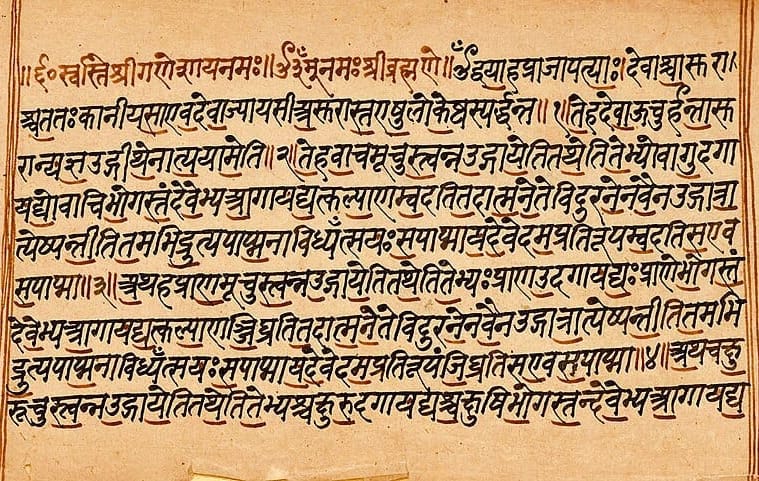 ॥६०स्वस्तिश्रीगणेशायनमः॥ॐ३मूनमःश्रीब्रह्मणे॥ॐद्वयाहप्राजापत्याः।देवाश्चासुरा।
श्चततःकानीयसाएवदेवाज्यायसीअसुरास्तएषुलोकेष्वस्पर्द्धन्त॥१॥तेहदेवाऊचुर्हन्तासु
रान्यज्ञउद्गीथेनात्ययामेति॥२॥तेहवाचमूचुस्त्वन्नउद्गायेतितथेतितेभ्योवागुदगा
यद्योवाचिभोगस्तंदेवेभ्यआगायद्यत्कल्याणम्वदतितदात्मनेतेविदुरनेनवैनउद्गात्रा
त्येष्यन्तीतितमभिद्रुत्यपाप्मनाविध्यँत्सयःसपाप्मायदेवेदमप्रतिरूपम्वदतिसएव
सपाप्मा॥३॥अथहप्राणमूचुस्त्वन्नउद्गायेतितथेतितेभ्यःप्राणउदगायद्यःप्राणेभोगस्तं
देवेभ्यआगायद्यत्कल्याणञ्जिघ्रतितदात्मनेतेविदुरनेनवैनउद्गात्रात्येष्यन्तीतितमभि
द्रुत्यपाप्मनाविध्यँत्सयःसपाप्मायदेवेदमप्रतिरूपंजिघ्रतिसएवसपाप्मा॥४॥अथचक्षु
रूचुस्त्वन्नउद्गायेतितथेतितेभ्यश्चक्षुरुदगायद्यश्चक्षुषिभोगस्तन्देवेभ्यआगायद्य